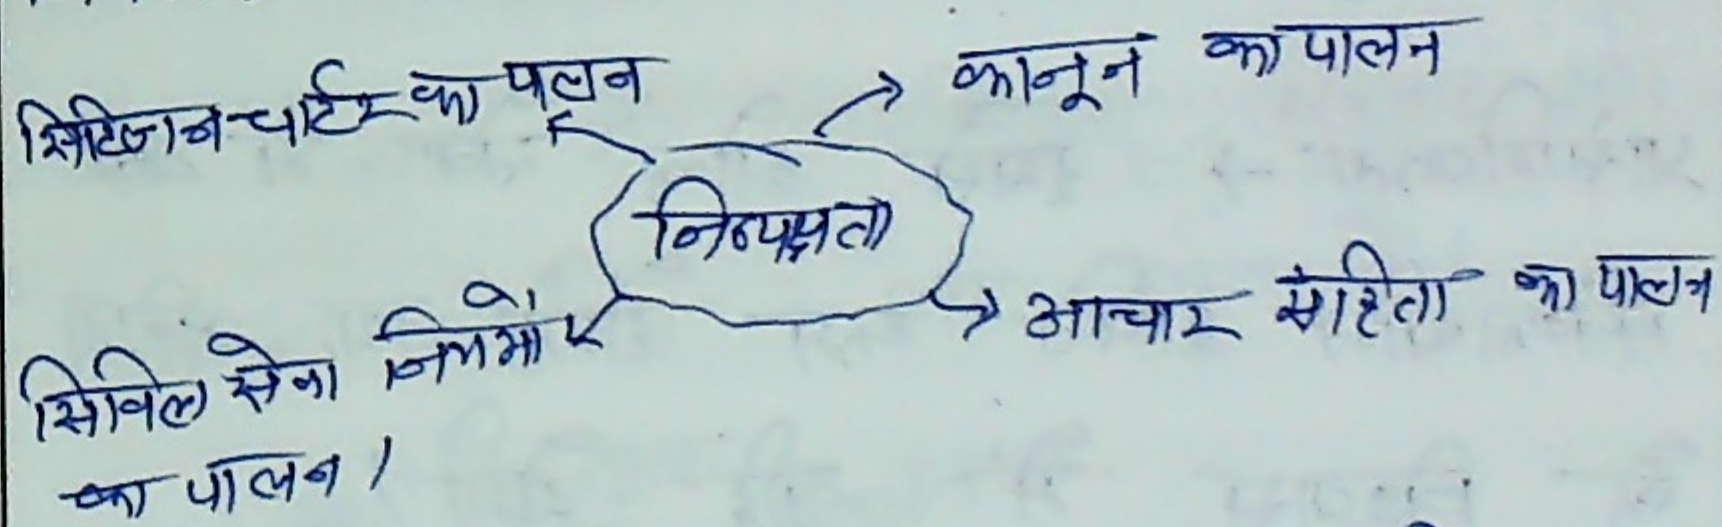 सिटिजन चार्टर का पालन
कानून का पालन
निष्पक्षता
सिविल सेवा नियमों
का पालन।
आचार संहिता का पालन